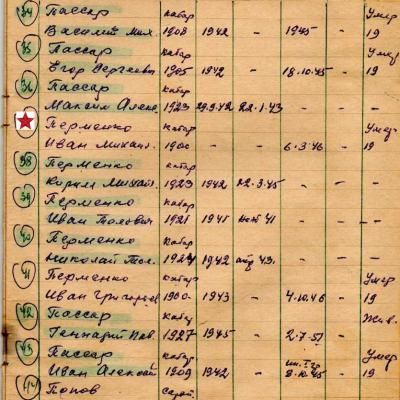 34 Пассар кавал. Умер
Василий Мих. 1908 1942 - 1945 - 19
35 Пассар кавал. Умер
Егор Сергеевич 1905 1942 - 18.10.45 - 19
36 Пассар кавал.
Максим Алекс. 1923 29.9.42 22.1.43 - - -
Перменко кавал. Умер
Иван Михаил. 1900 - - 6.3.46 - 19
38 Перменко кавал.
Кирилл Михайл. 1923 1942 22.3.45 - - -
39 Перменко кавал.
Иван 1921 1941 41 - - -
40 Перменко кавал.
Николай 1924 1942 43. - - -
41 Перменко кавал. Умер
Иван Григорьев 1900 1943 - 4.10.46 - 19
42 Пассар кавал. Жив.
Геннадий Пав. 1927 1945 - 2.7.51 -
43 Пассар кавал. Умер
Иван Алексей 1909 1942 - 3.10.45 - 19
44 Попов Сарат.